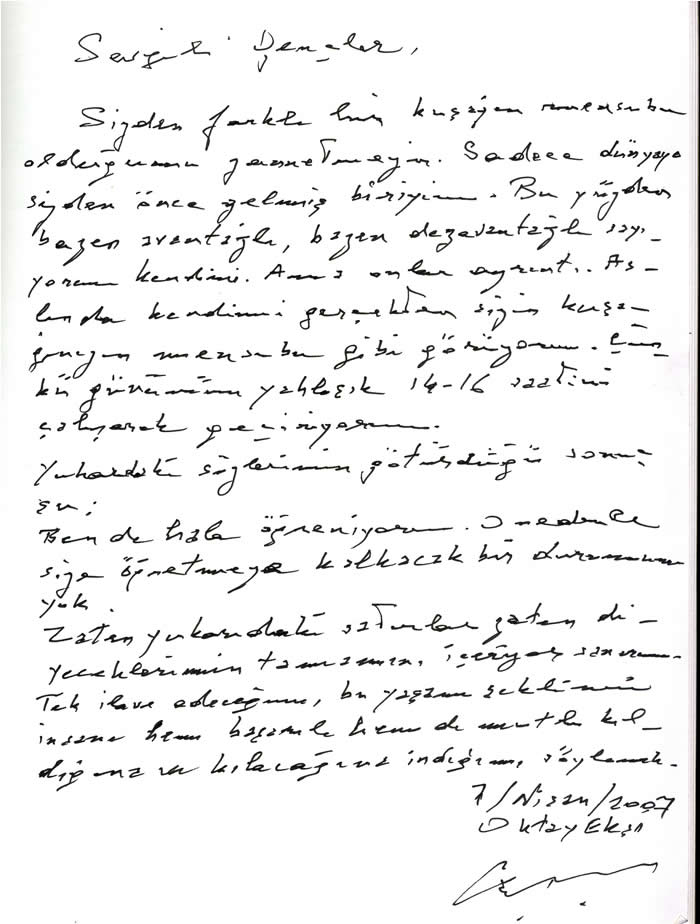 Sevgili Gençler,
Sizden farklı bir kuşağın mensubu
olduğumu zannetmeyin. Sadece dünyaya
sizden önce gelmiş biriyim. Bu yüzden
bazen avantajlı, bazen dezavantajlı sayı-
yorum kendimi. Ama onlar ayrıntı. As-
lında kendimi gerçekten sizin kuşa-
ğınızın mensubu gibi görüyorum. Çün-
kü günümün yaklaşık 14-16 saatini
çalışarak geçiriyorum.
Yukardaki sözlerimin götürdüğü sonuç
şu:
Ben de hala öğreniyorum. O nedenle
size öğretmeye kalkacak bir durumum
yok.
Zaten yukarıdaki satırlar zaten di-
yeceklerimin tamamını içeriyor sanırım.
Tek ilave edeceğim, bu yaşam şeklinin
insanı hem başarılı hem de mutlu kıl-
dığına ve kılacağına inandığımı söylemek.
7/Nisan/2007
Oktay Ekşi